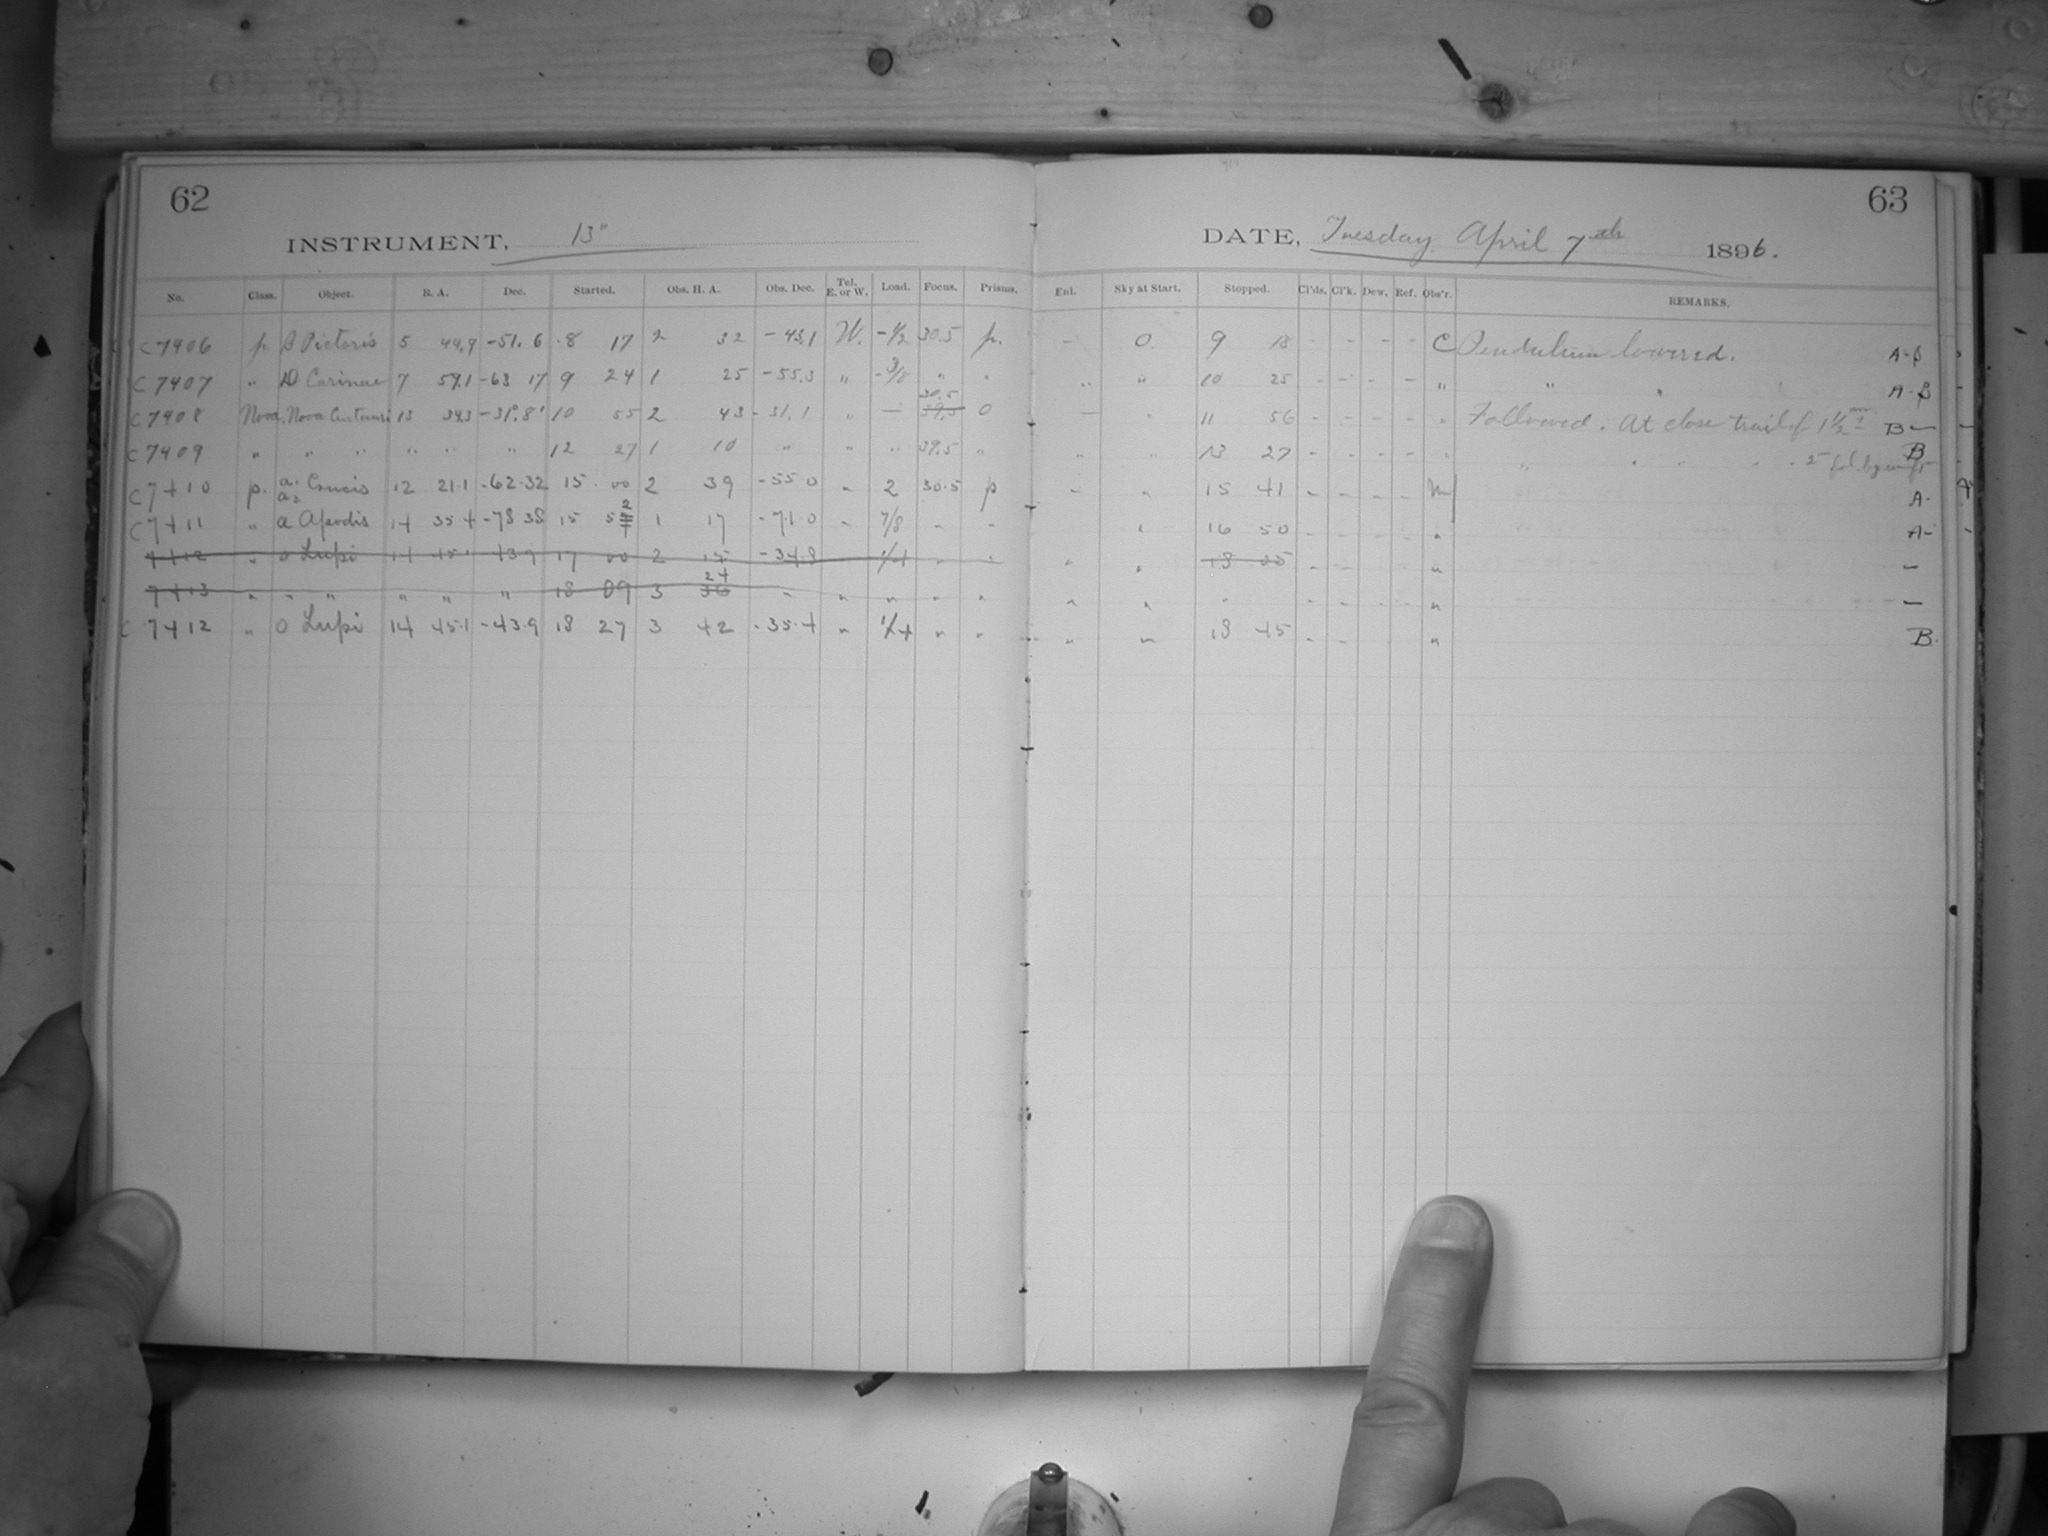 62
63
INSTRUMENT, 13"
DATE, Tuesday April 7th 1896.
No. Class. Object. R. A. Dec. Started. Obs. H. A. Obs. Dec. Tel. E. or W. Load. Focus. Prisms. Enl. Sky at Start. Stopped. Cl'ds. Cl'k. Dew. Ref. Obs'r. REMARKS.
C 7406 p β Pictoris 5 44.9 -51.6 8 17 2 32 -43.1 W. -1/2 30.5 p. - 0. 9 18 - - - - C Pendulum lowered. A-B
C 7407 " D Carinae 7 59.1 -63 17 9 24 1 25 -55.3 " -3/8 " " " " 10 25 - - - - " " " A-B
C 7408 Nova. Nova Centauri 13 34.3 -31°.8' 10 55 2 43 -31.1 " - 30.5 39.5 0 - " 11 56 - - - - " Followed. At close trail of 1 1/2 B-
C 7409 " " " " " " 12 27 1 10 " " " 39.5 " " " 13 27 - - - - " " " " " B
C 7410 p. a1 a2 Crucis 12 21.1 -62.32 15 00 2 39 -55.0 " 2 30.5 p - " 15 41 - - - - M A-
C 7411 " a Apodis 14 35.4 -78 38 15 52 1 17 -71.0 " 7/8 " " " 16 50 - - - - " A-
7412 " o Lupi 14 45.1 -43.9 17 00 2 15 -34.8 1/4 " " " " 18 05 - - - - " -
7413 " " " " " " 18 09 3 24 36 " " " " " " " " - - - - " -
C 7412 " o Lupi 14 45.1 -43.9 18 27 3 42 -35.4 " 1/4 " " " " 18 45 - - - " B.